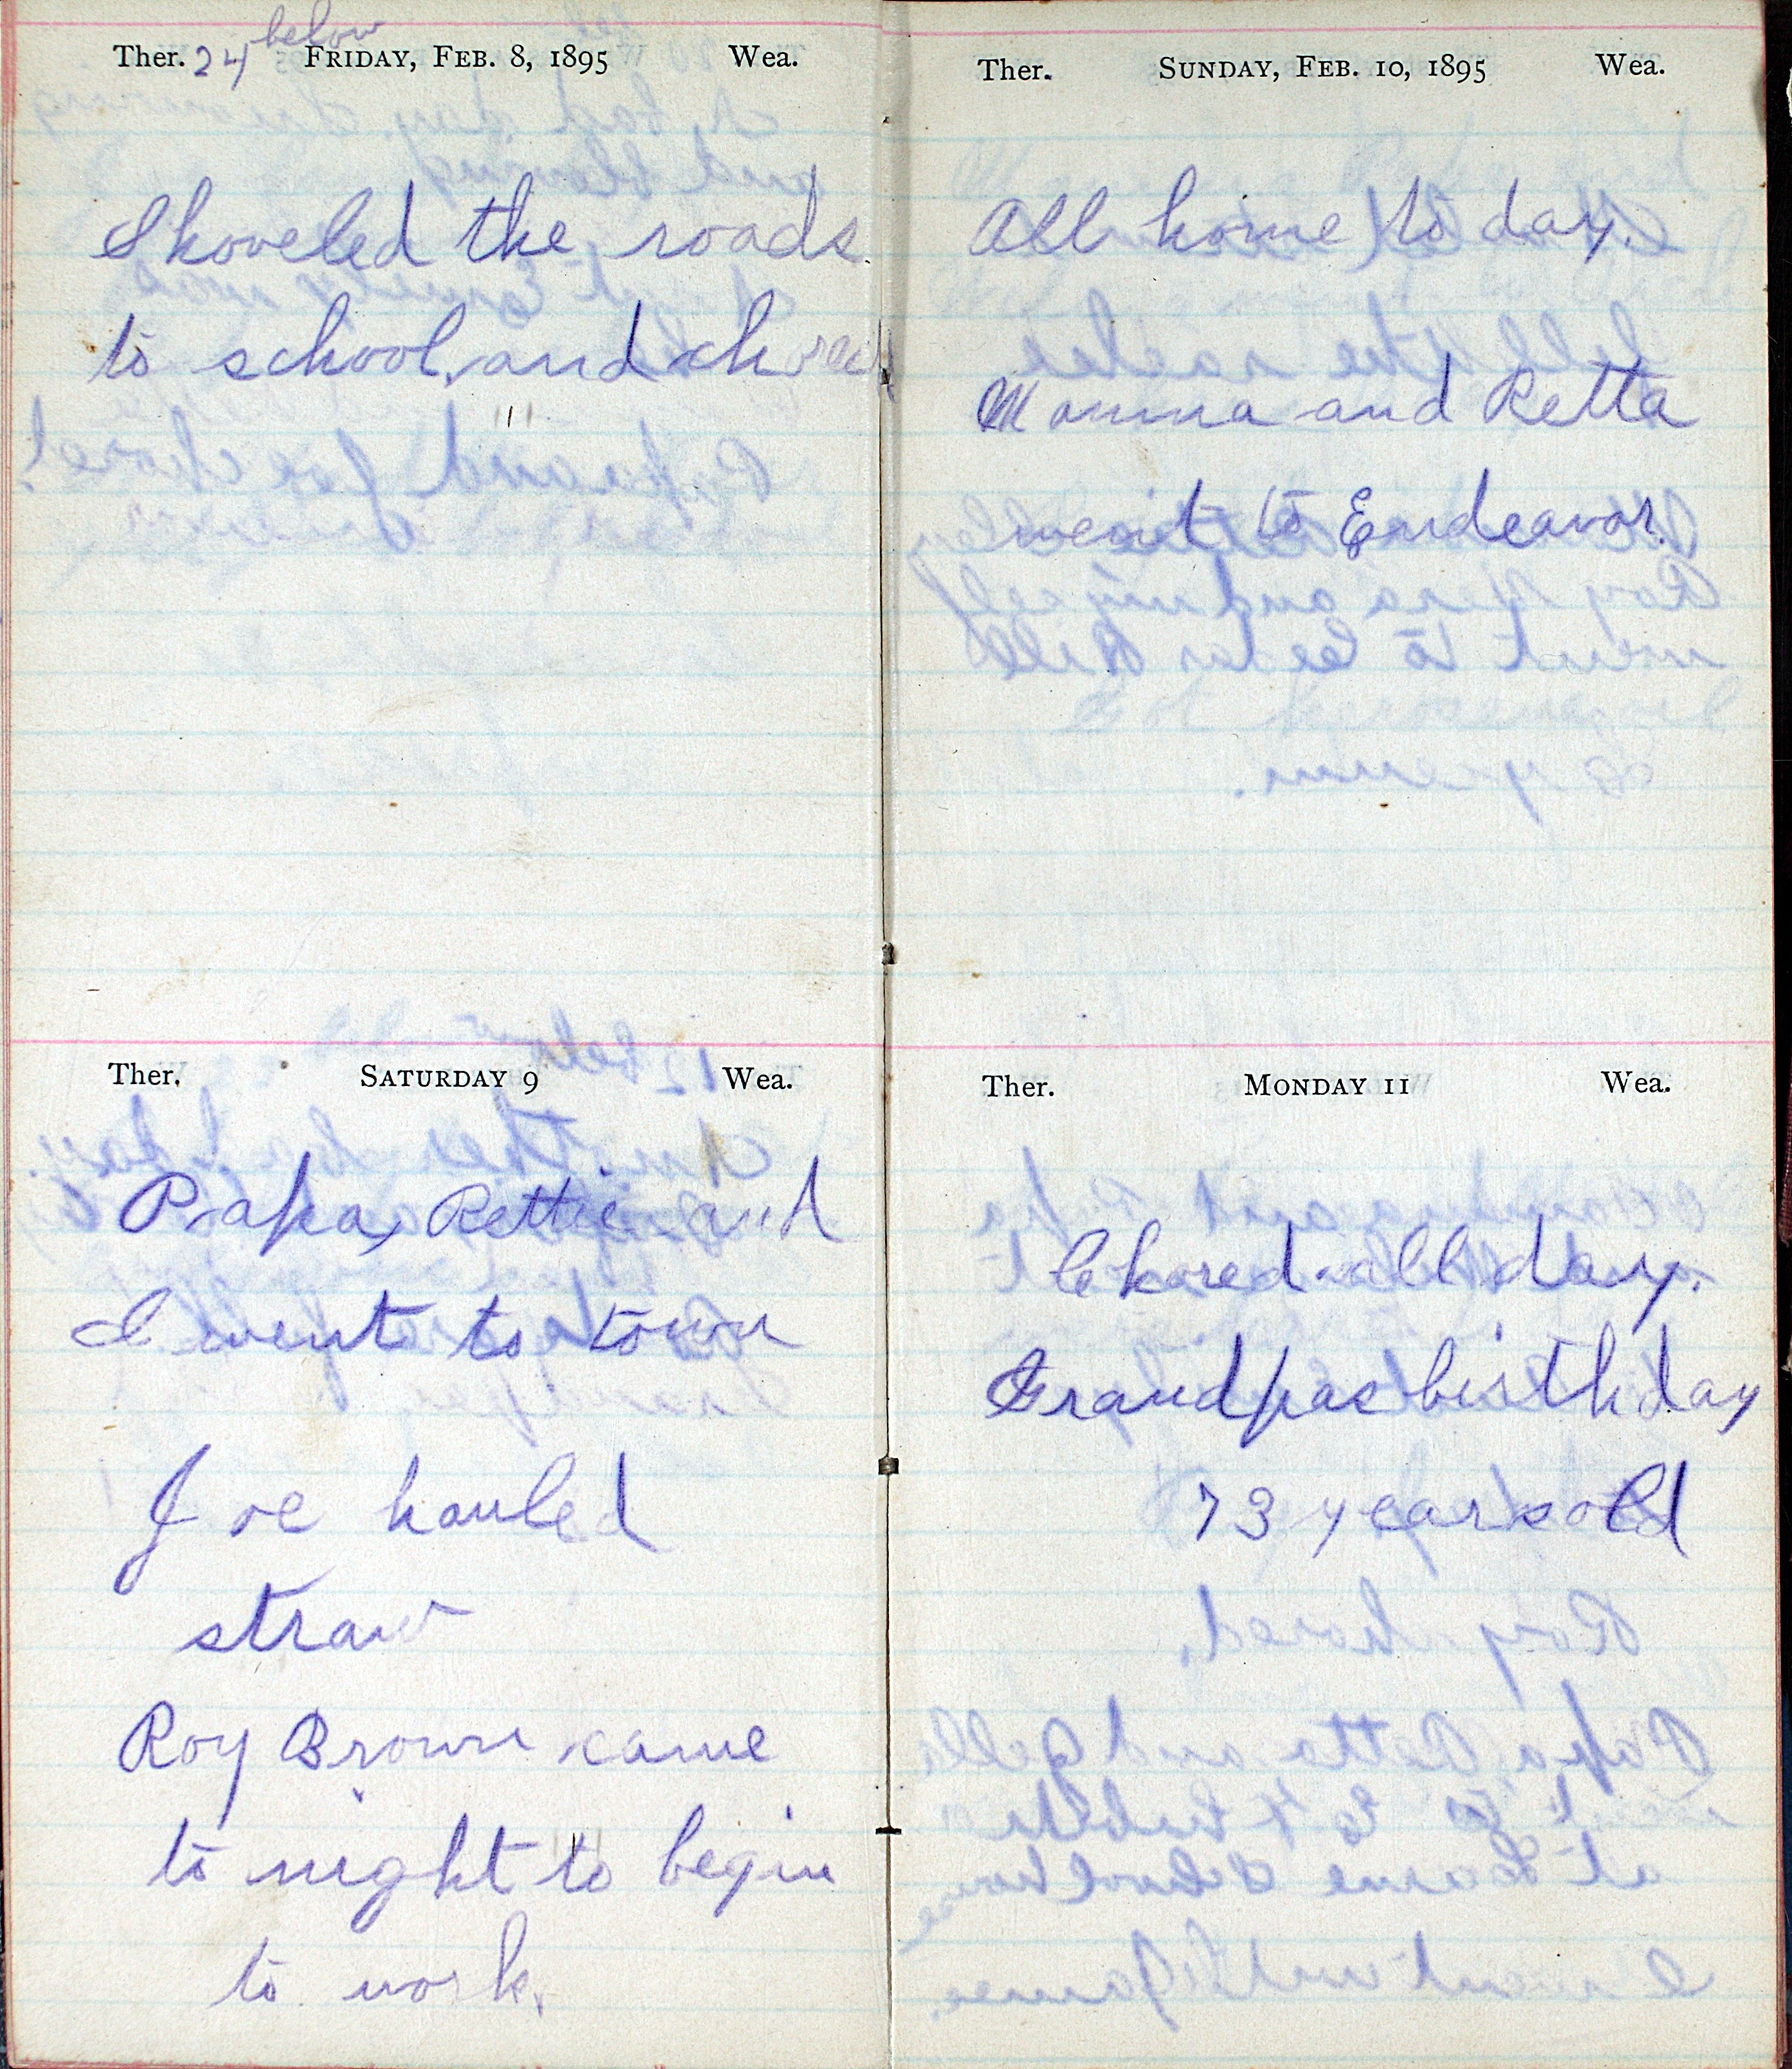 Ther. 24 below FRIDAY, FEB. 8, 1895 Wea.
Shoveled the roads
to school, and chored
Ther. SATURDAY 9 Wea.
Papa, Rettie and
I went to town
Joe hauled
straw
Roy Brown came
to night to begin
to work.
Ther. SUNDAY, FEB. 10, 1895 Wea.
All home to day.
Mamma and Retta
went to Endeavor.
Ther. MONDAY 11 Wea.
Chored all day.
Grandpas birthday
73 years old